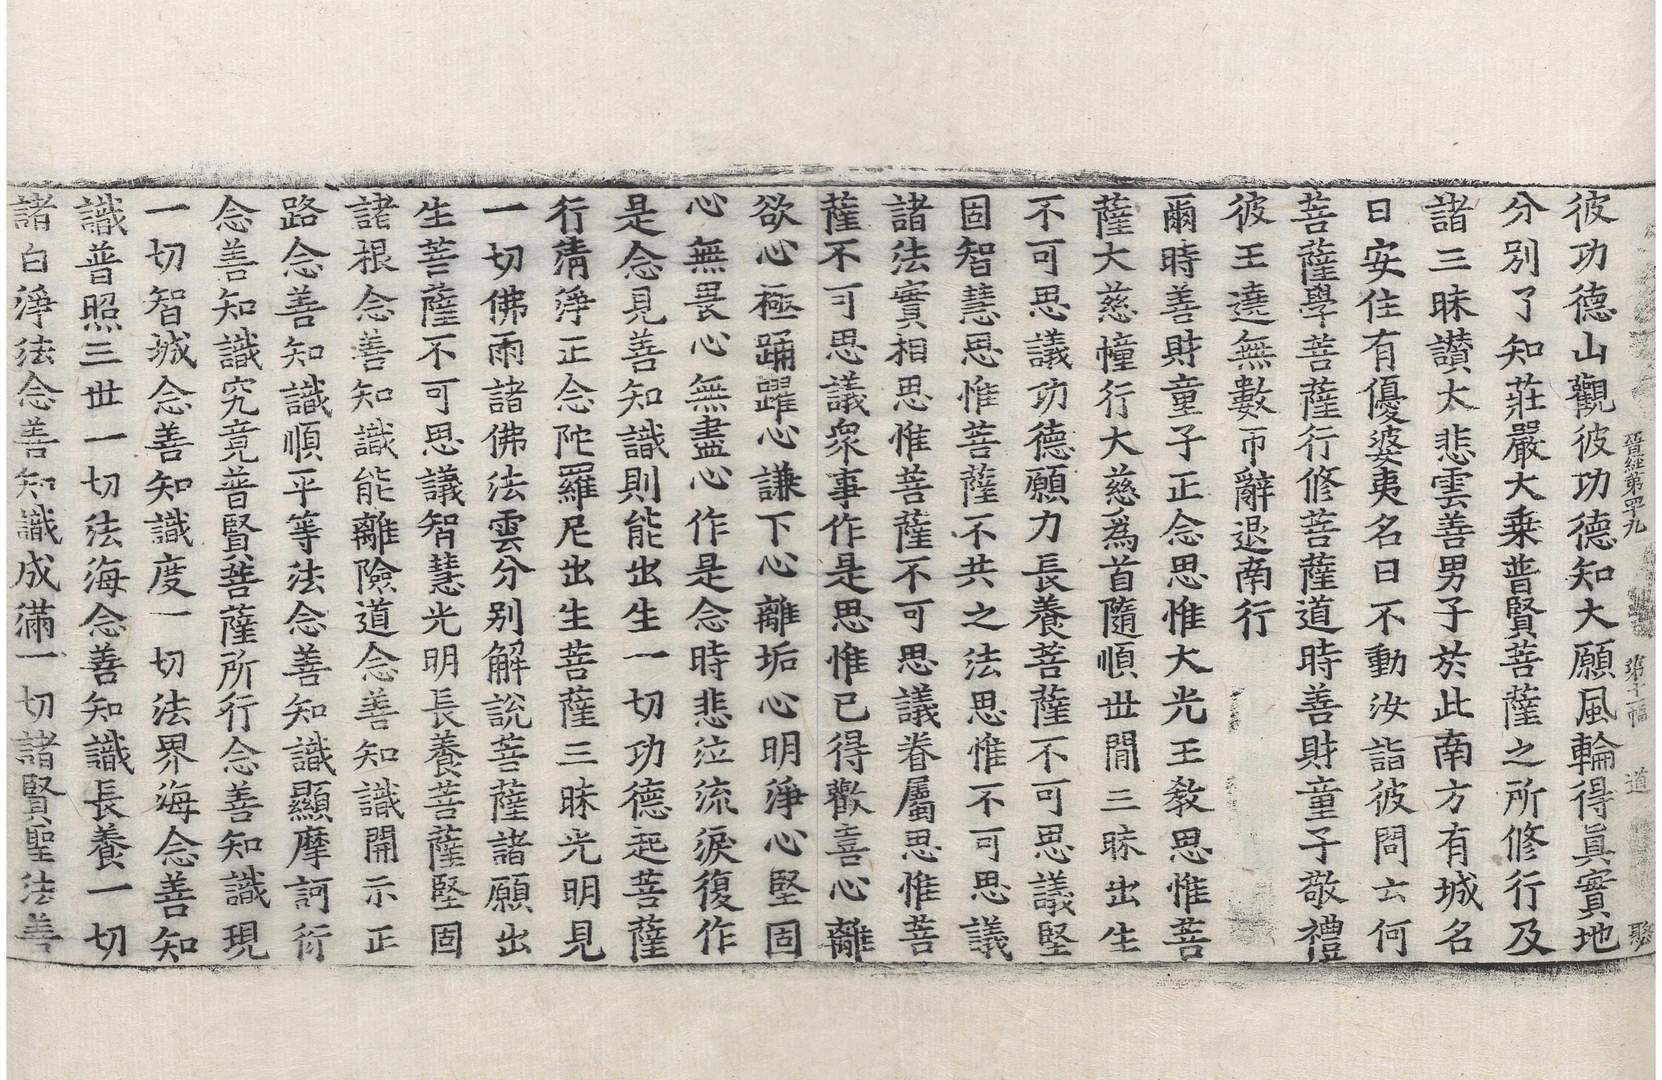 晉經第四九　第十一幅　道
彼功德山觀彼功德知大願風輪得眞實地
分別了知莊嚴大乗普賢菩薩之所修行及
諸三昧讃大悲雲善男子於此南方有城名
日安住有優婆夷名曰不動汝詣彼問云何
菩薩學菩薩行修菩薩道時善財童子敬禮
彼王遶無數帀辭退南行
爾時善財童子正念思惟大光王教思惟菩
薩大慈幢行大慈爲首隨順世間三昧出生
不可思議功德願力長養菩薩不可思議堅
固智慧思惟菩薩不共之法思惟不可思議
諸法實相思惟菩薩不可思議眷屬思惟菩
薩不可思議衆事作是思惟已得歡喜心離
欲心極踊躍心謙下心離垢心明淨心堅固
心無畏心無盡心作是念時悲泣流淚復作
是念見善知識則能出生一切功德起菩薩
行清淨正念陀羅尼出生菩薩三昧光明見
一切佛雨諸佛法雲分别解說菩薩諸願出
生菩薩不可思議智慧光明長養菩薩堅固
諸根念善知識能離險道念善知識開示正
路念善知識順平等法念善知識顯摩訶衍
念善知識究竟普賢菩薩所行念善知識現
一切智城念善知識度一切法界海念善知
識普照三世一切法海念善知識長養一切
諸白淨法念善知識成滿一切諸賢聖法善